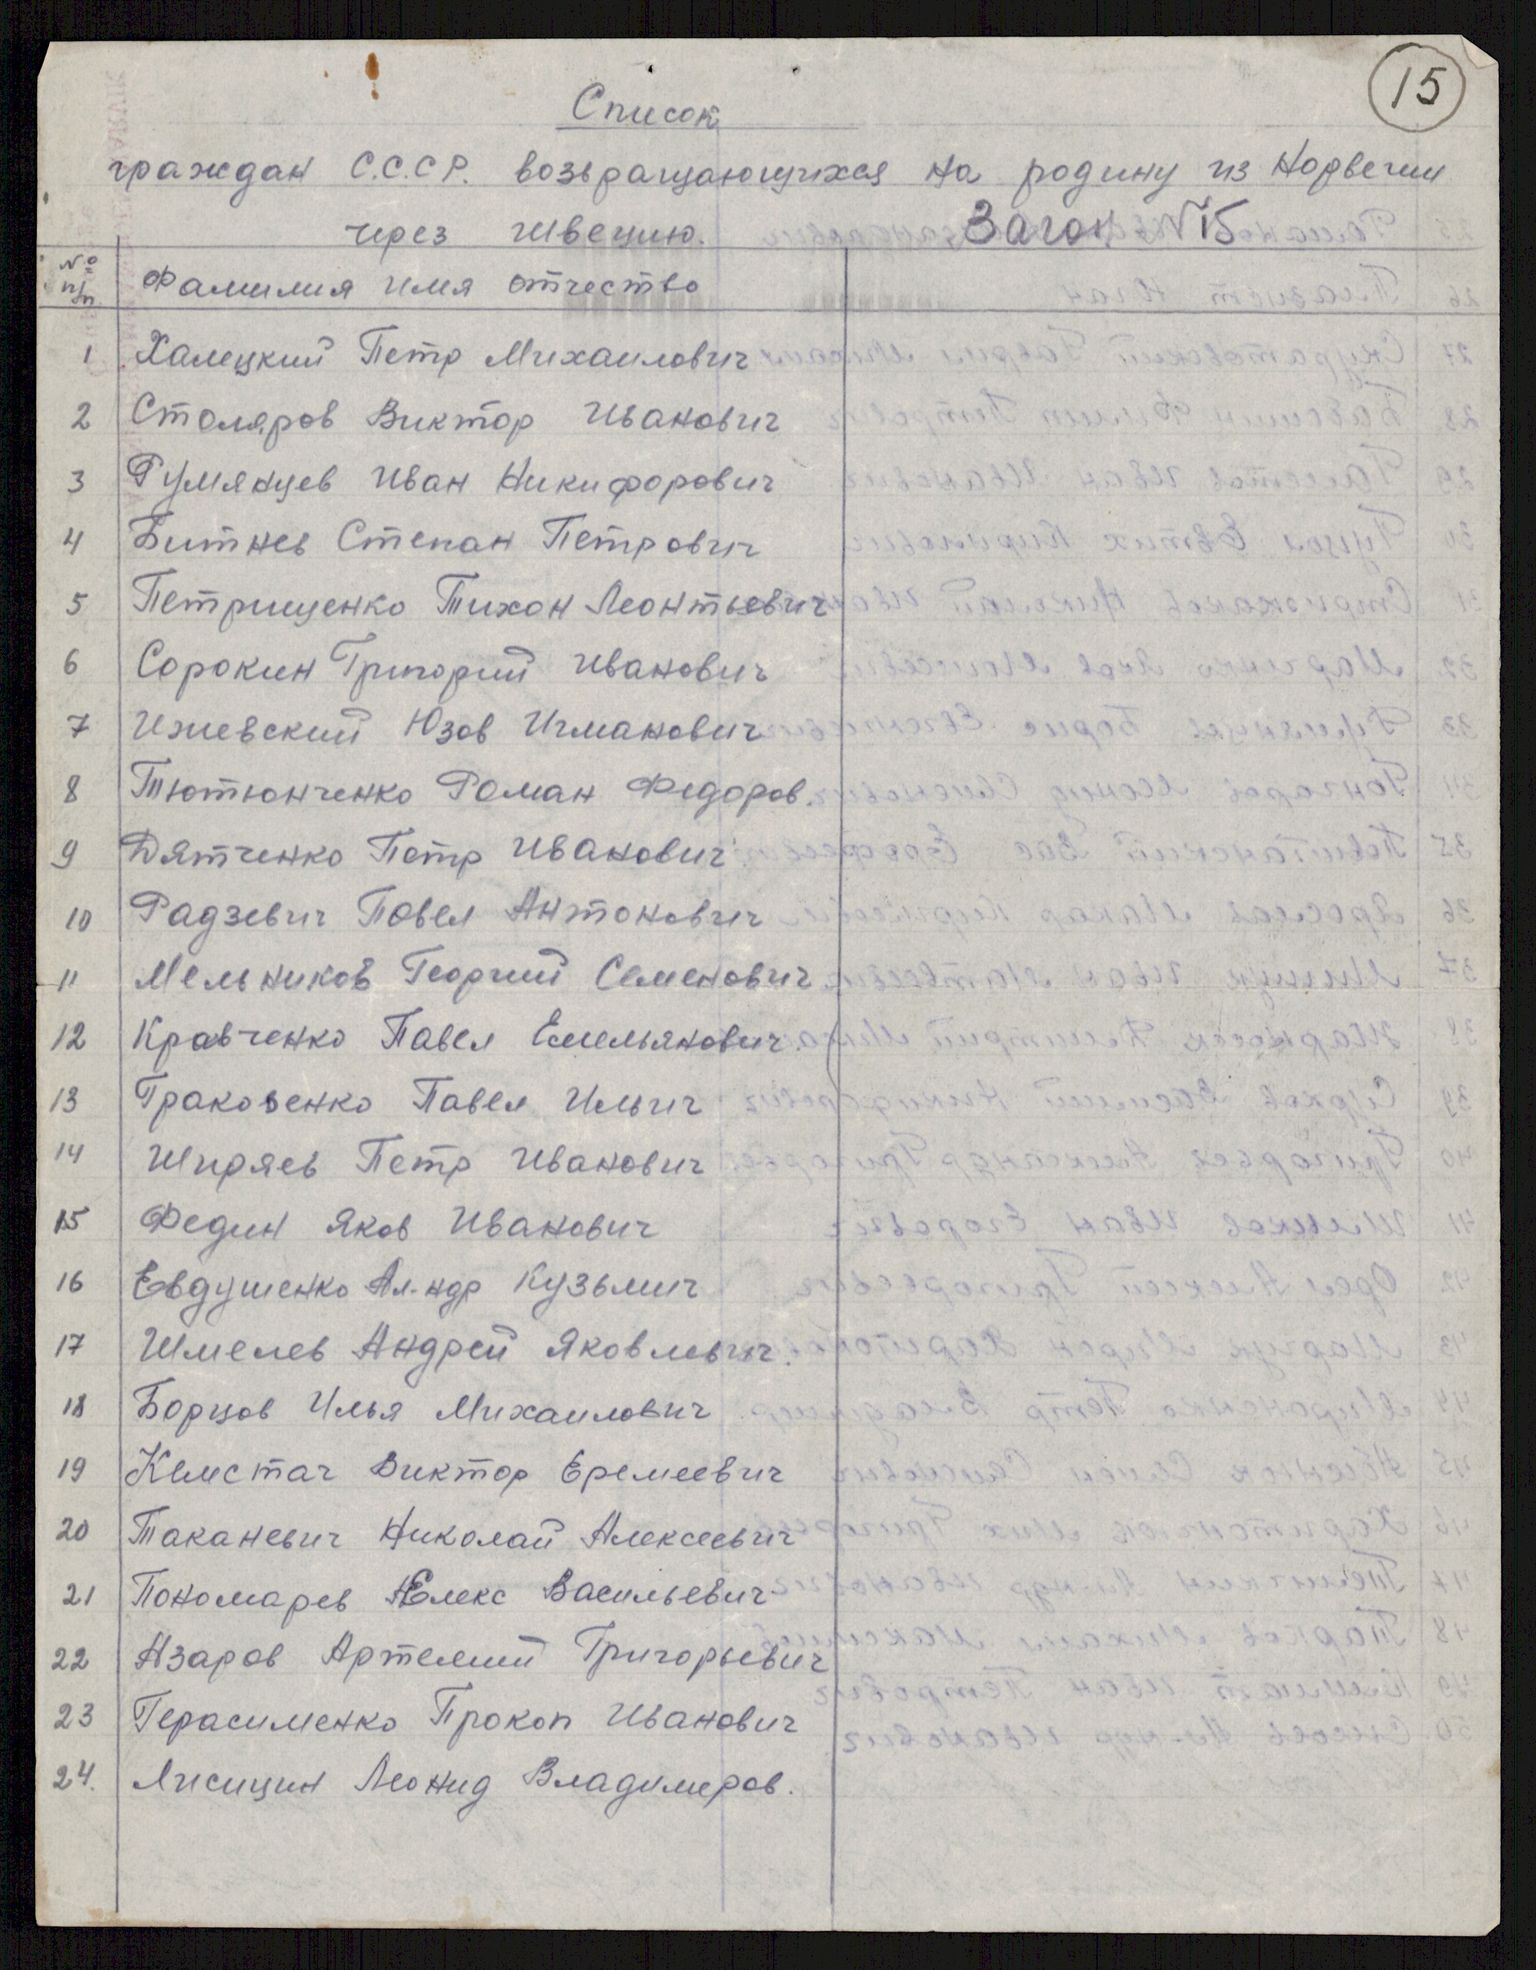 15
Список
граждан С.С.С.Р. возвращающихся на родину из Норвегии
через Швецию. Вагон №15
№ п/п Фамилия имя отчество
1 Халецкий Петр Михаилович
2 Столяров Виктор Иванович
3 Румянцев Иван Никифорович
4 Битнев Степан Петрович
5 Петрищенко Тихон Леонтьевич
6 Сорокин Григорий Иванович
7 Ижевский Юзов Игманович
8 Тютюнченко Роман Федоров.
9 Дятченко Петр Иванович
10 Радзевич Павел Антонович
11 Мельников Георгий Семенович
12 Кравченко Павел Емельянович.
13 Праковенко Павел Ильич
14 Ширяев Петр Иванович
15 Федин Яков Иванович
16 Евдушенко Ал-ндр Кузьмич
17 Шмелев Андрей Яковлевич.
18 Борцов Илья Михаилович
19 Виктор Еремеевич
20 Таканевич Николай Алексеевич
21 Пономарев Васильевич
22 Азаров Артемий Григорьевич
23 Герасименко Прокоп Иванович
24. Лисицин Леонид Владимеров.